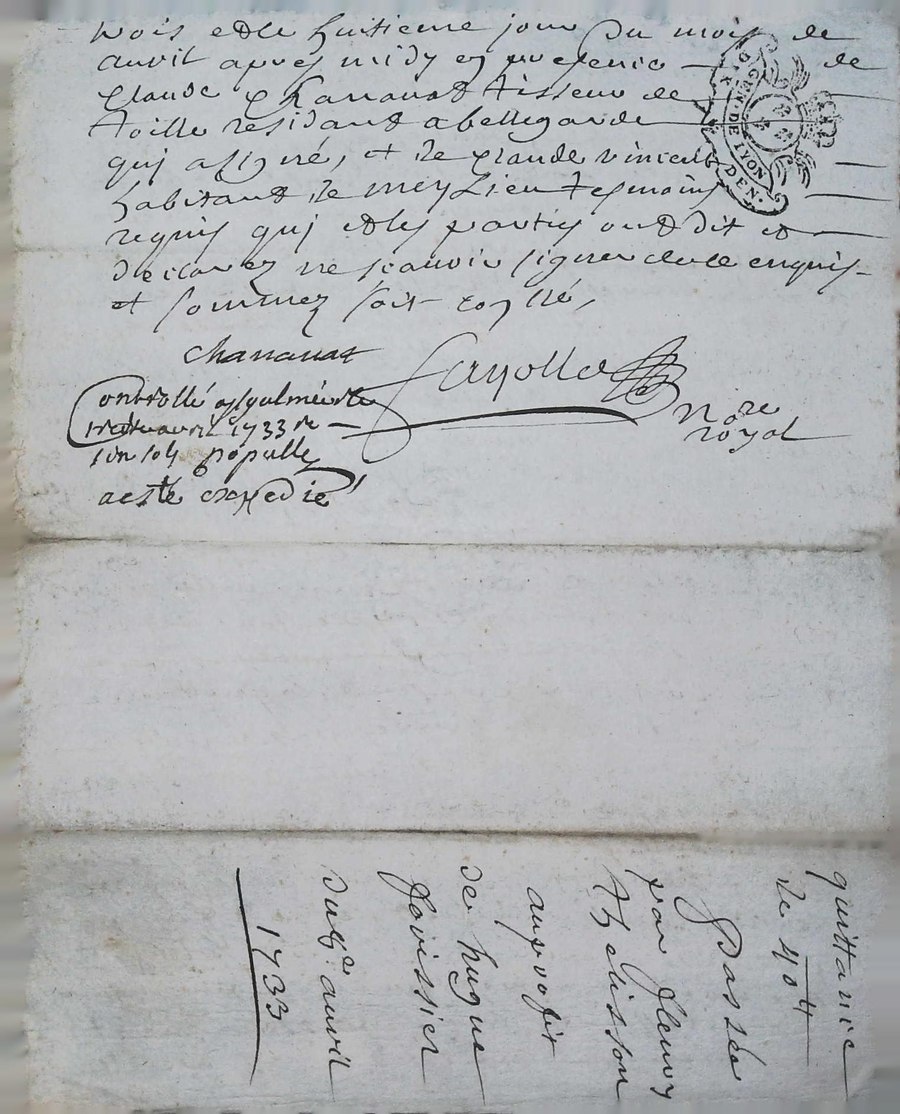 trois et le huitieme jour du mois de
avril apres midy en presence de
Claude Chananat tisseur de
toille residant a bellegarde
quj a signé, et de Claude vincent
habitant de meylieu tesmoins
requis quj et les partis ont dit et
declarez ne scauoir signer de ce enquis
et sommez soit coñllé,
chananat
fayolle
No.re
royal
Controllé a st galmier le
avril 1733 Re
six sols
a esté expedié
DIX
DEN.
DE LYON
quittance
de 40 ₶
passée
par fleury
thelisson
au profit
de hugue
du 8.e avril
1733